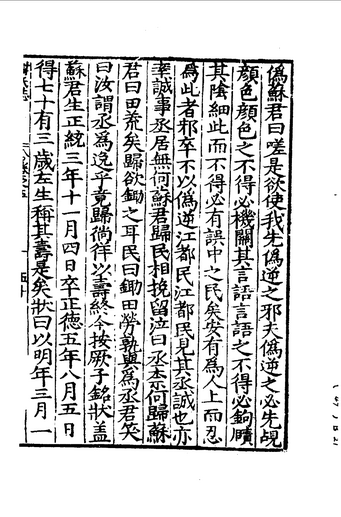 偽蘇君曰嗟是欲使我先偽逆之邪夫偽逆之必先覘
顔色顔色之不得必機關其言語言語之不得必鉤賾
其陰細此而不得必有誤中之民矣安有為人上而忍
為此者邪卒不以偽逆江都民江都民見其丞誠也亦
率誠事丞居無何蘇君歸民相挽留泣曰丞柰何歸蘇
君曰田荒矣歸欲鋤之耳民曰鋤田勞孰與為丞君笑
曰汝謂丞為逸乎竟歸徜徉以壽終今按厥子銘狀盖
蘇君生正統三年十一月四日卒正德五年八月五日
得七十有三歲左生稱其壽是矣狀曰以明年三月一